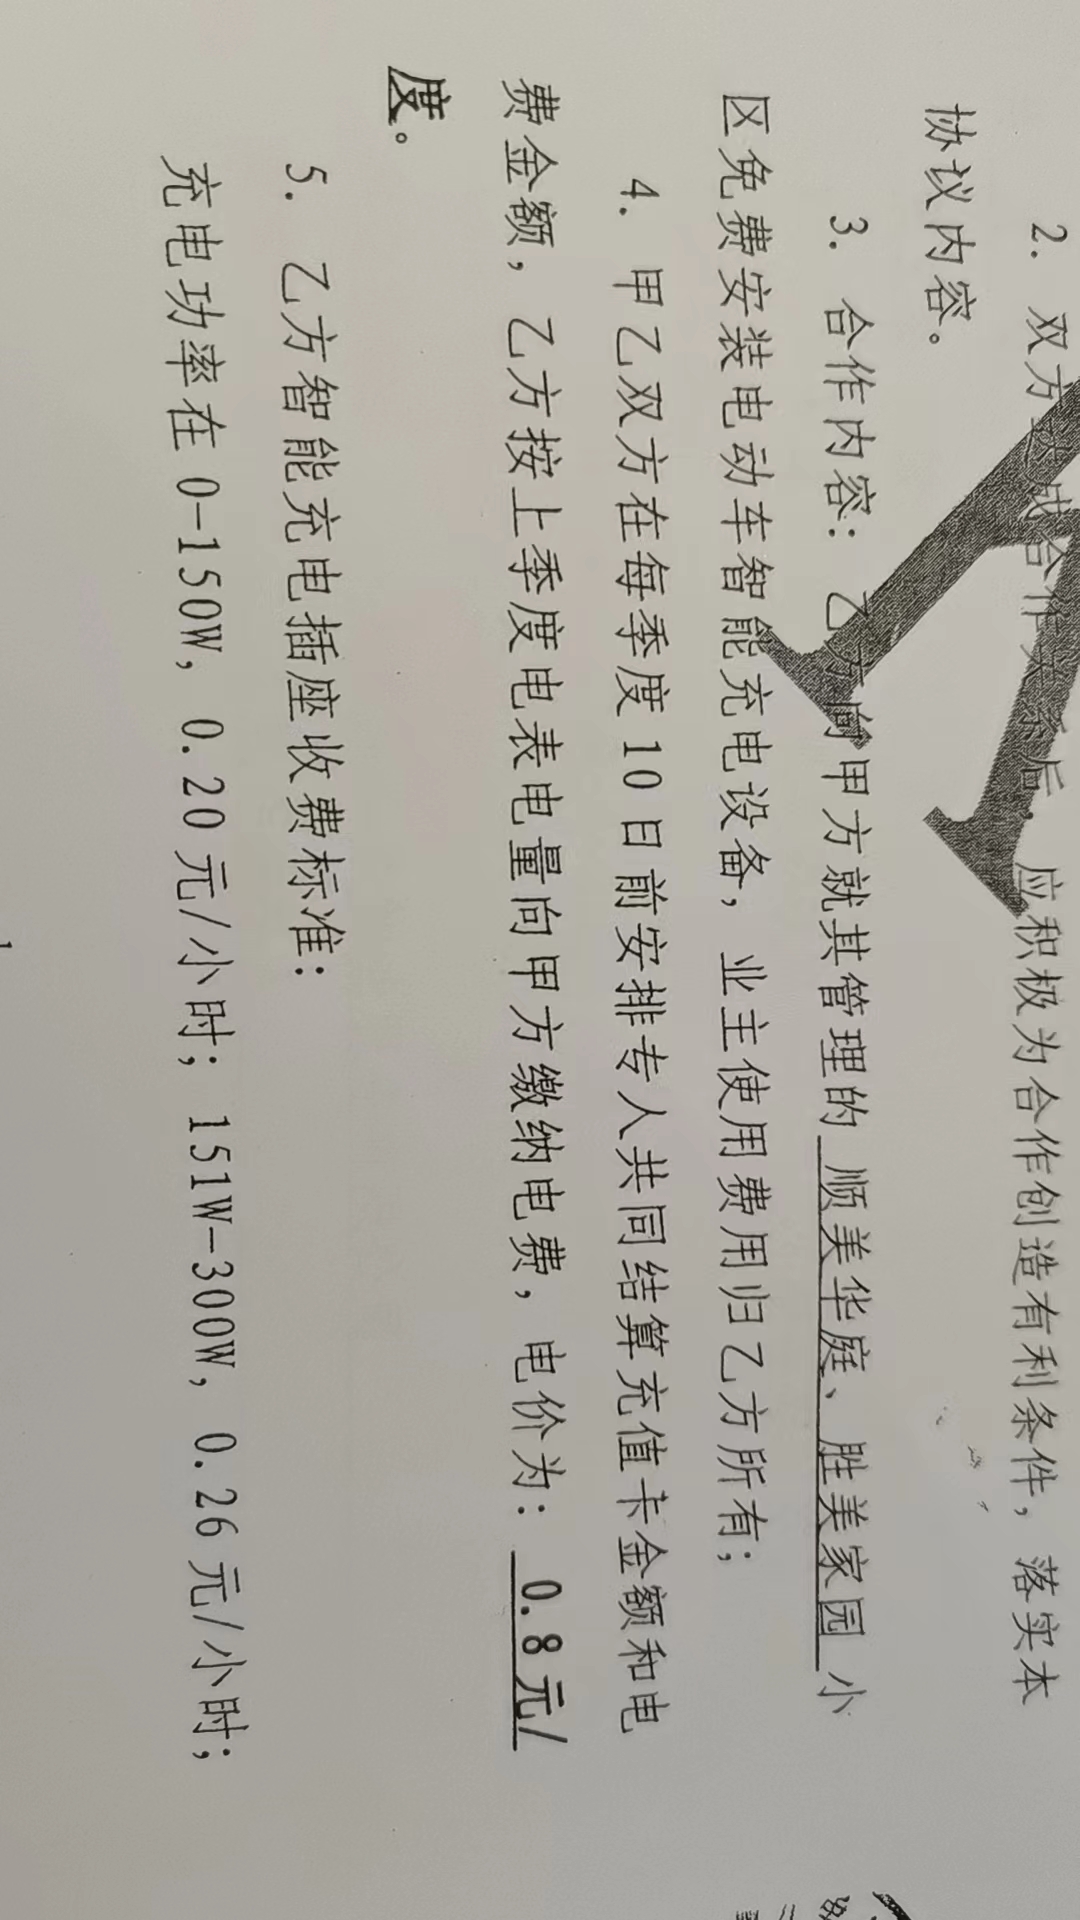 2. 双方达成合作关系后，应积极为合作创造有利条件，落实本
协议内容。
3. 合作内容：乙方向甲方就其管理的 顺美华庭、胜美家园 小
区免费安装电动车智能充电设备，业主使用费用归乙方所有；
4. 甲乙双方在每季度10日前安排专人共同结算充值卡金额和电
费金额，乙方按上季度电表电量向甲方缴纳电费，电价为： 0.8元/
度。
5. 乙方智能充电插座收费标准：
充电功率在0-150W，0.20元/小时；151W-300W，0.26元/小时；
1